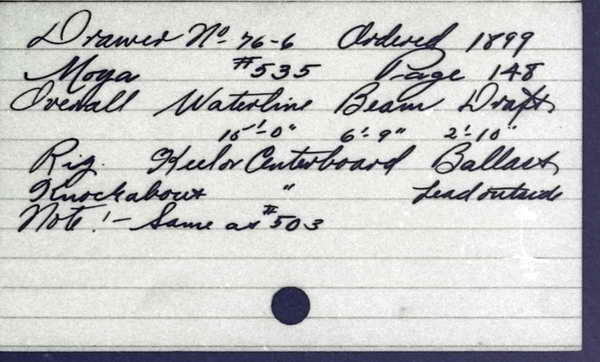 Drawer No. 76-6 Ordered 1899
Moya #535 Page 148
Overall Waterline Beam Draft
15'-0" 6'-9" 2'-10"
Rig. Keel or Centerboard Ballast
Knockabout " Lead outside
Note:- Same as #503